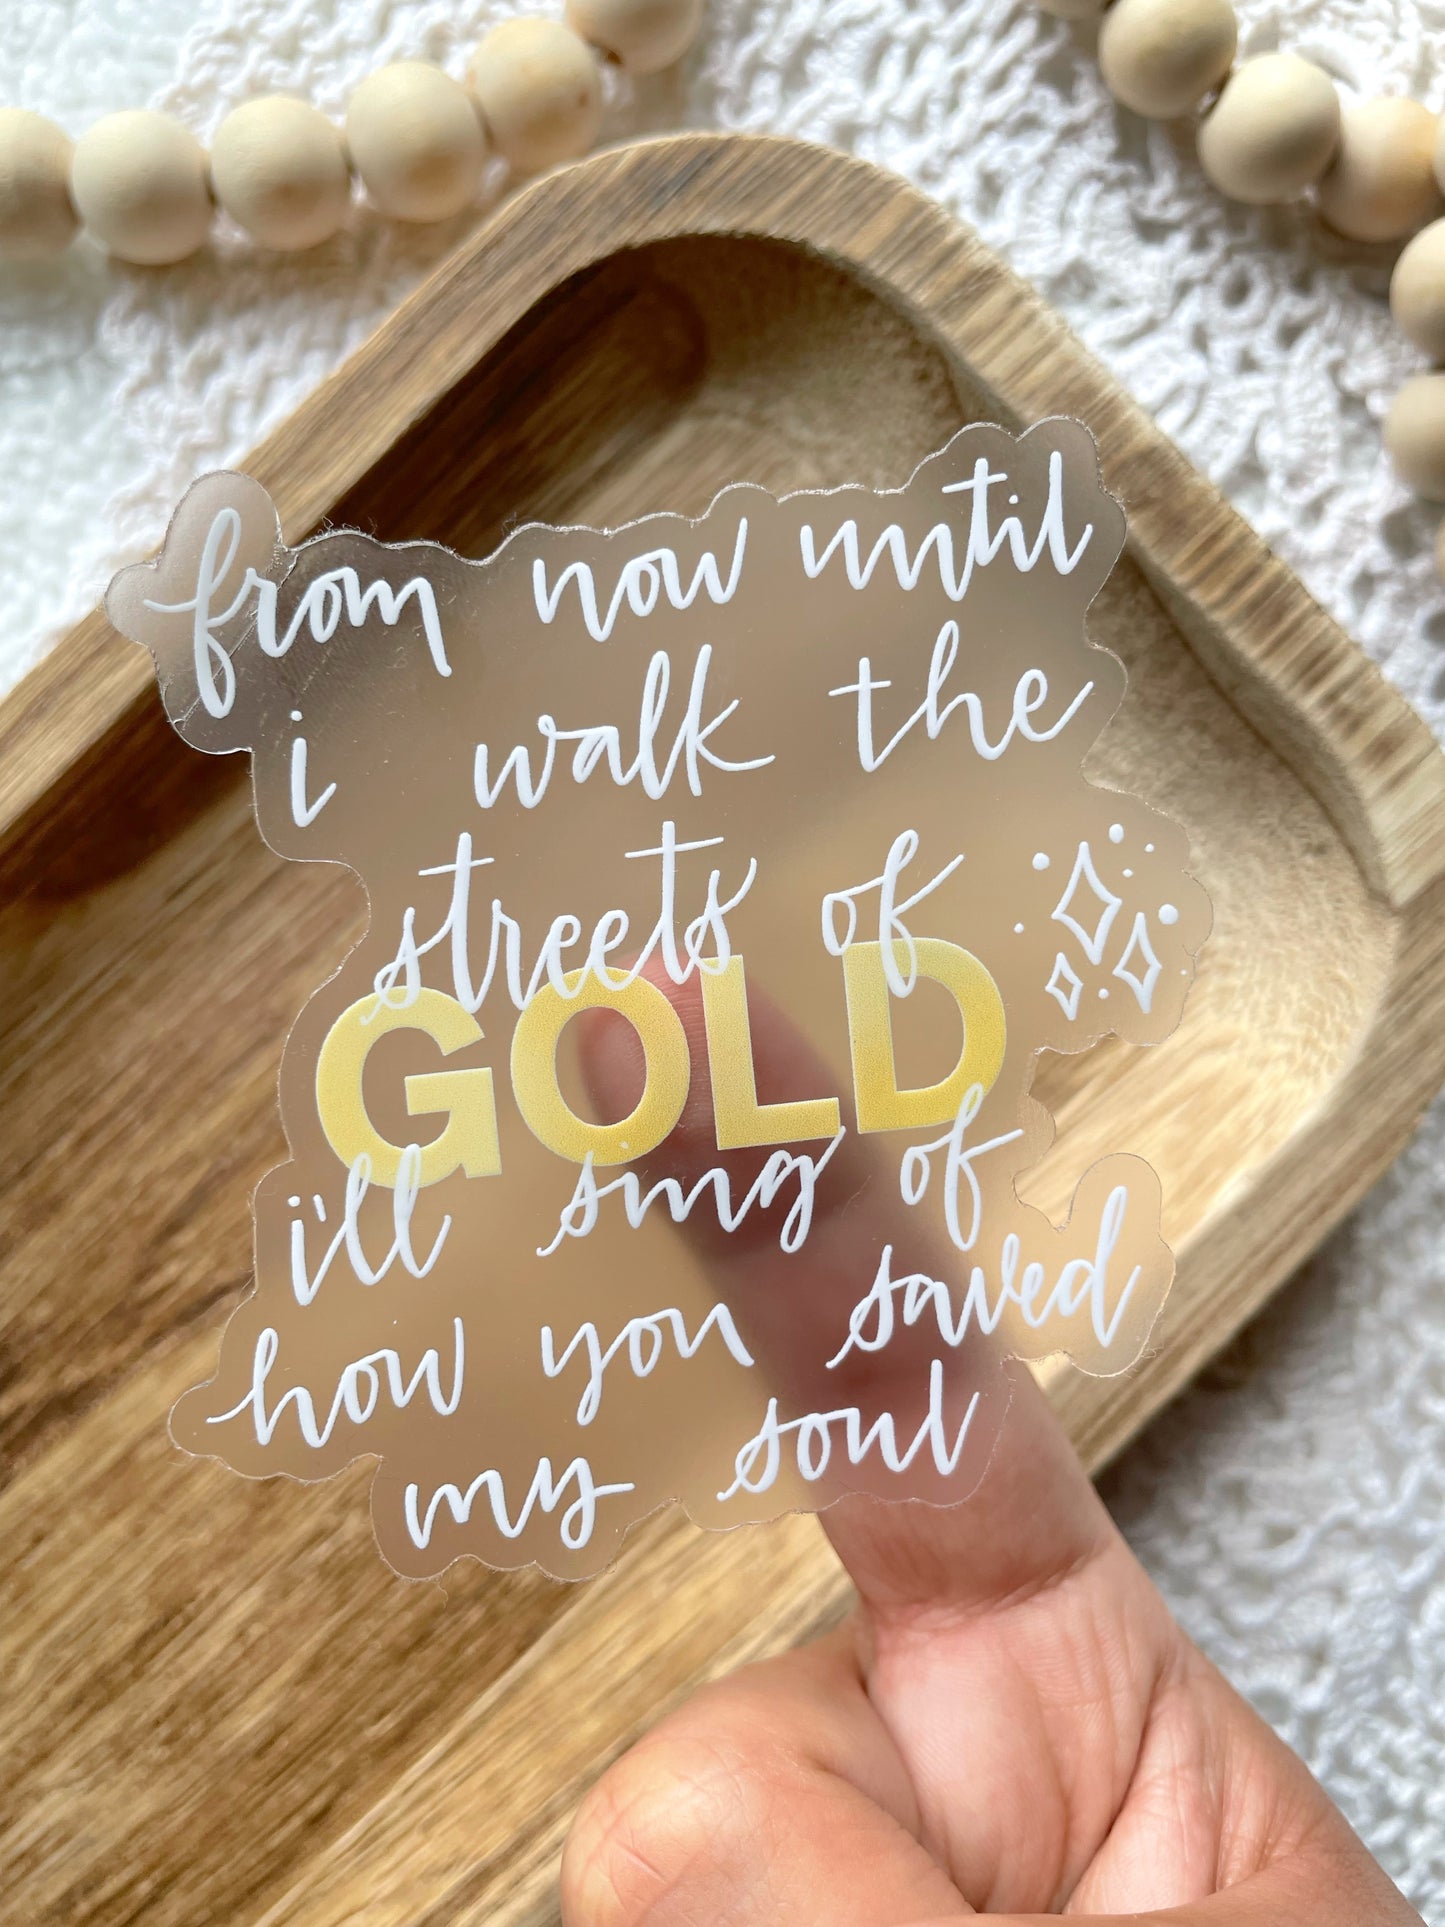 from now until
i walk the
streets of
GOLD
i'll sing of
how you saved
my soul